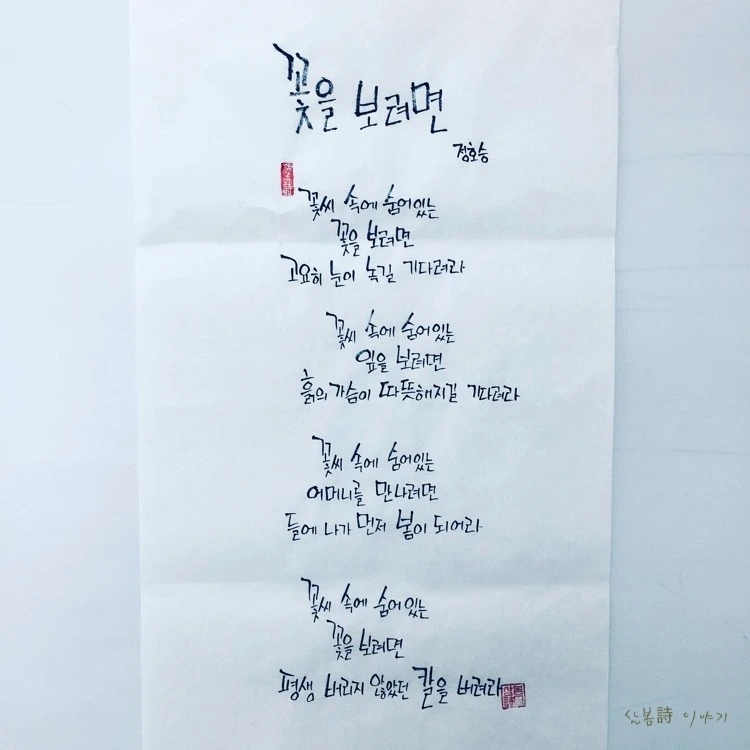 꽃을 보려면
정호승
꽃씨 속에 숨어있는
꽃을 보려면
고요히 눈이 녹길 기다려라
꽃씨 속에 숨어있는
잎을 보려면
흙의 가슴이 따뜻해지길 기다려라
꽃씨 속에 숨어있는
어머니를 만나려면
들에 나가 먼저 봄이 되어라
꽃씨 속에 숨어있는
꽃을 보려면
평생 버리지 않았던 칼을 버려라
산봄詩 이야기